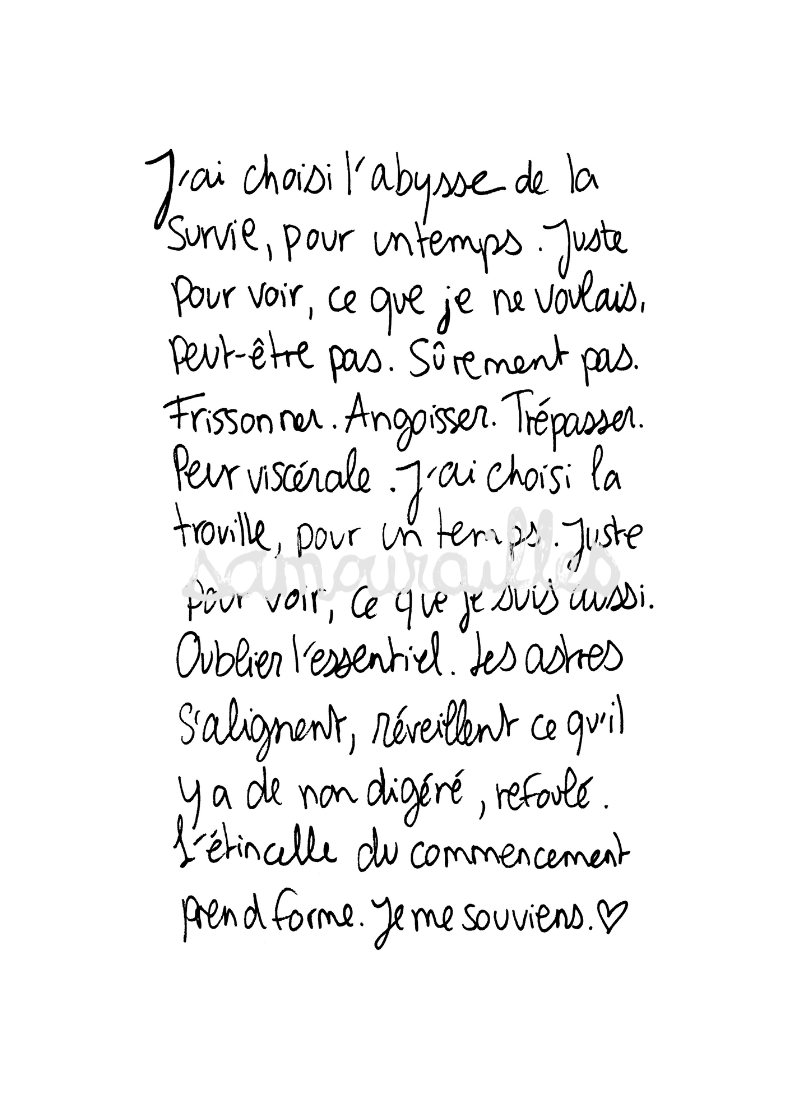 J'ai choisi l'abysse de la
survie, pour un temps. Juste
pour voir, ce que je ne voulais,
peut-être pas. Sûrement pas.
Frissonner. Angoisser. Trépasser.
Peur viscérale. J'ai choisi la
trouille, pour un temps. Juste
samourailles
pour voir, ce que je suis aussi.
Oublier l'essentiel. Les astres
s'alignent, réveillent ce qu'il
y a de non digéré, refoulé.
L'étincelle du commencement
prend forme. Je me souviens.♡